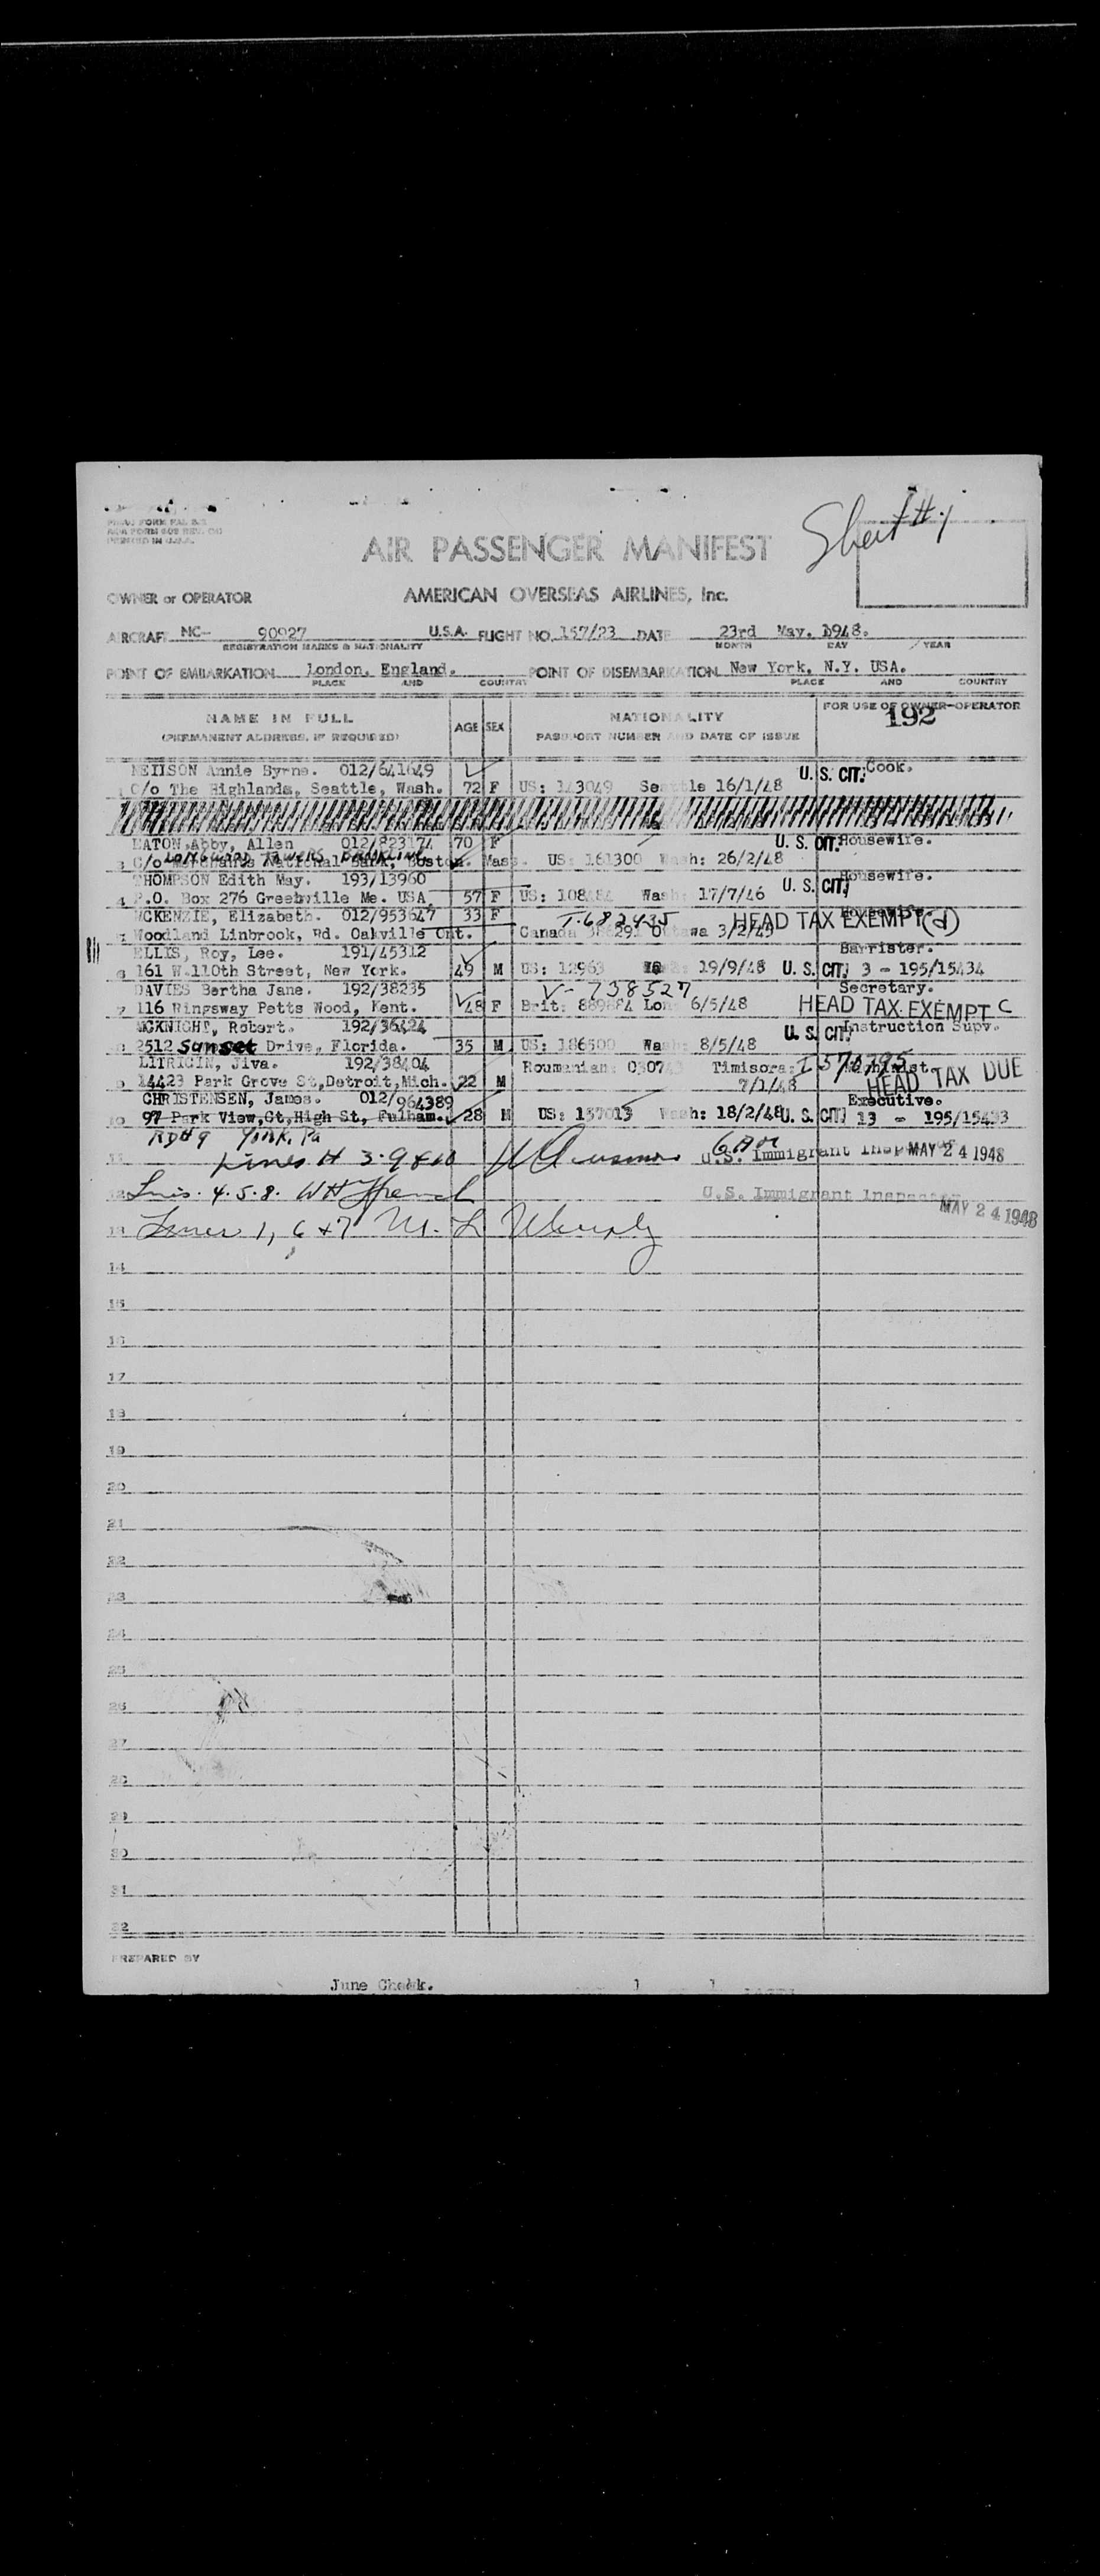 Sheet #1
AIR PASSENGER MANIFEST
OWNER or OPERATOR AMERICAN OVERSEAS AIRLINES, Inc.
AIRCRAFT NC- 90927 U.S.A. FLIGHT NO. 157/23 DATE 23rd May. 1948.
REGISTRATION MARKS & NATIONALITY MONTH DAY YEAR
POINT OF EMBARKATION London, England. POINT OF DISEMBARKATION New York, N.Y. USA.
PLACE AND COUNTRY PLACE AND COUNTRY
NAME IN FULL AGE SEX NATIONALITY FOR USE OF OWNER-OPERATOR
(PERMANENT ADDRESS, IF REQUIRED) PASSPORT NUMBER AND DATE OF ISSUE 192
NEILSON Annie Byrne. 012/641649 U. S. CIT. Cook.
1 C/o The Highlands, Seattle, Wash. 72 F US: 143049 Seattle 16/1/48
EATON Abby, Allen 012/823174 70 F U. S. CIT. Housewife.
LONGWOOD TOWERS BROOKLINE
3 C/o Merchants National Bank, Boston. Mass. US: 161300 Wash: 26/2/48
THOMPSON Edith May. 193/13960 U. S. CIT. Housewife.
4 P.O. Box 276 Greenville Me. USA. 57 F US: Wash: 17/7/46
MCKENZIE, Elizabeth. 012/953647 33 F T.682435 HEAD TAX EXEMPT (d) Housewife.
5 Woodland Linbrook, Rd. Oakville Ont. Canada Ottawa
ELLIS, Roy, Lee. 191/45312 Barrister.
6 161 W.110th Street, New York. 49 M US: 12963 19/9/48 U. S. CIT. 3 - 195/15434
DAVIES Bertha Jane. 192/38235 V- 738527 Secretary.
7 116 Kingsway Petts Wood, Kent. 48 F Brit: Lon: 6/5/48 HEAD TAX EXEMPT C
MCKNIGHT, Robert. 192/36424 U. S. CIT. Instruction Supv.
8 2512 Sunset Drive, Florida. 35 M US: 186500 Wash: 8/5/48
LITRICIN, Jiva. 192/38404 Roumanian: Timisora: Machinist.
9 14423 Park Grove St,Detroit,Mich. 22 M 7/1/48 HEAD TAX DUE
CHRISTENSEN, James. 012/964389 Executive.
10 97 Park View,Ct,High St, Fulham. 28 M US: 157013 Wash: 18/2/48 U. S. CIT. 13 - 195/15433
RD#9 York, Pa
11 Lines # 3-9 & 10 U.S. Immigrant Inspector MAY 24 1948
12 Lns. 4.5.8. WH French U.S. Immigrant Inspector MAY 24 1948
13 Lines 1, 6 + 7 M. L.
14
15
16
17
18
19
20
21
22
23
24
25
26
27
28
29
30
31
32
PREPARED BY
June Cheek.